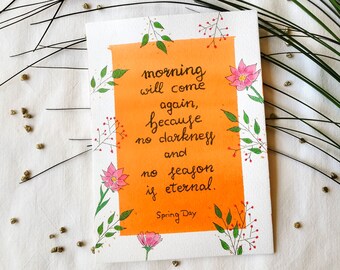 morning
will come
again,
because
no darkness
and
no season
is eternal.
Spring Day